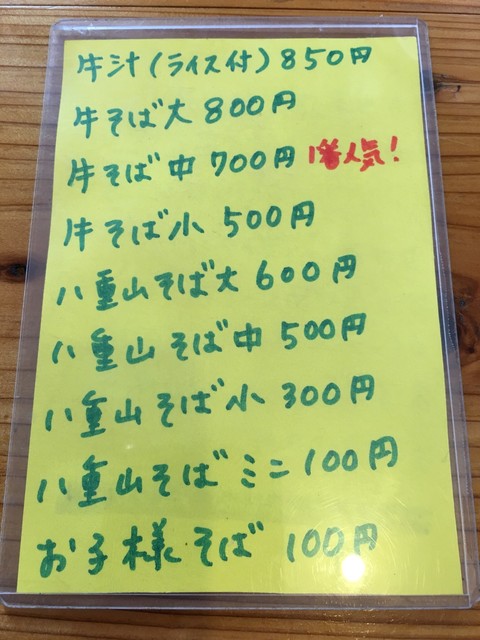 牛汁(ライス付)850円
牛そば大800円
牛そば中700円 1番人気!
牛そば小 500円
八重山そば大600円
八重山そば中500円
八重山そば小300円
八重山そばミニ100円
お子様そば 100円